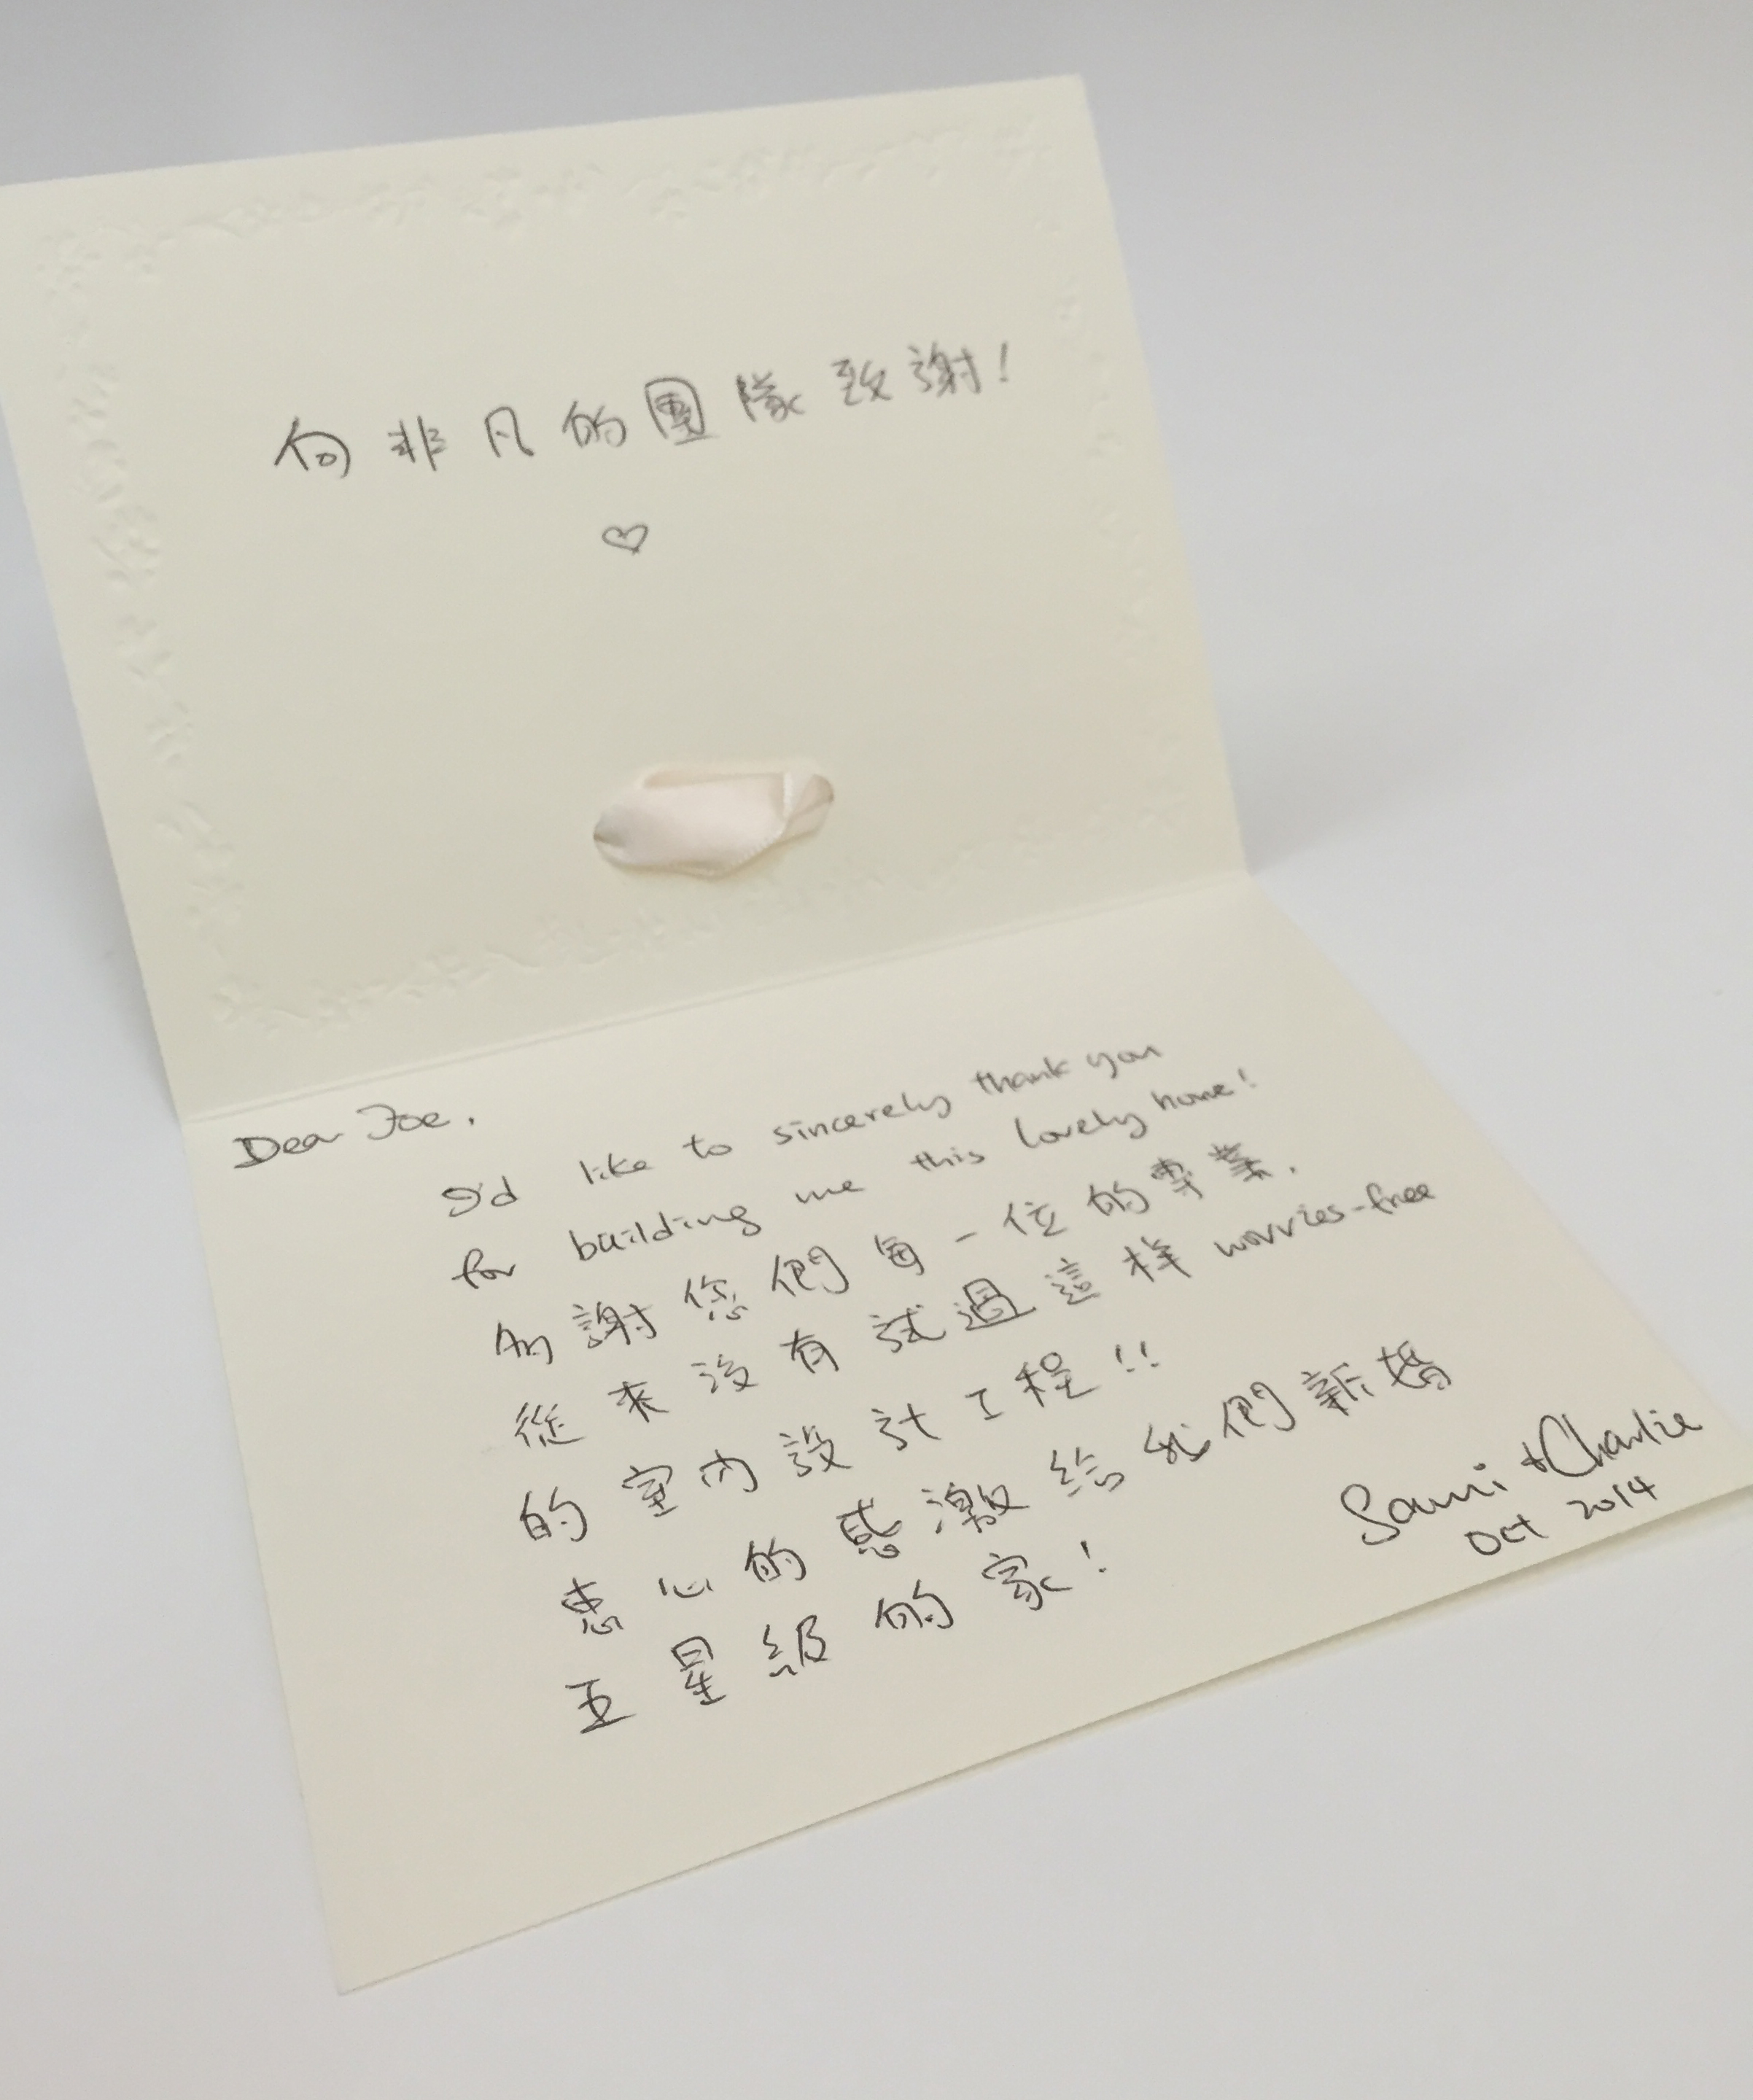 向非凡的團隊致謝!
♡
Dear Joe,
I'd like to sincerely thank you
for building me this lovely home!
多謝您們每一位的專業,
從來沒有試過這樣 worries-free
的室內設計工程!!
衷心的感激給我們新婚
五星級的家!
Sammi & Charlie
Oct 2014